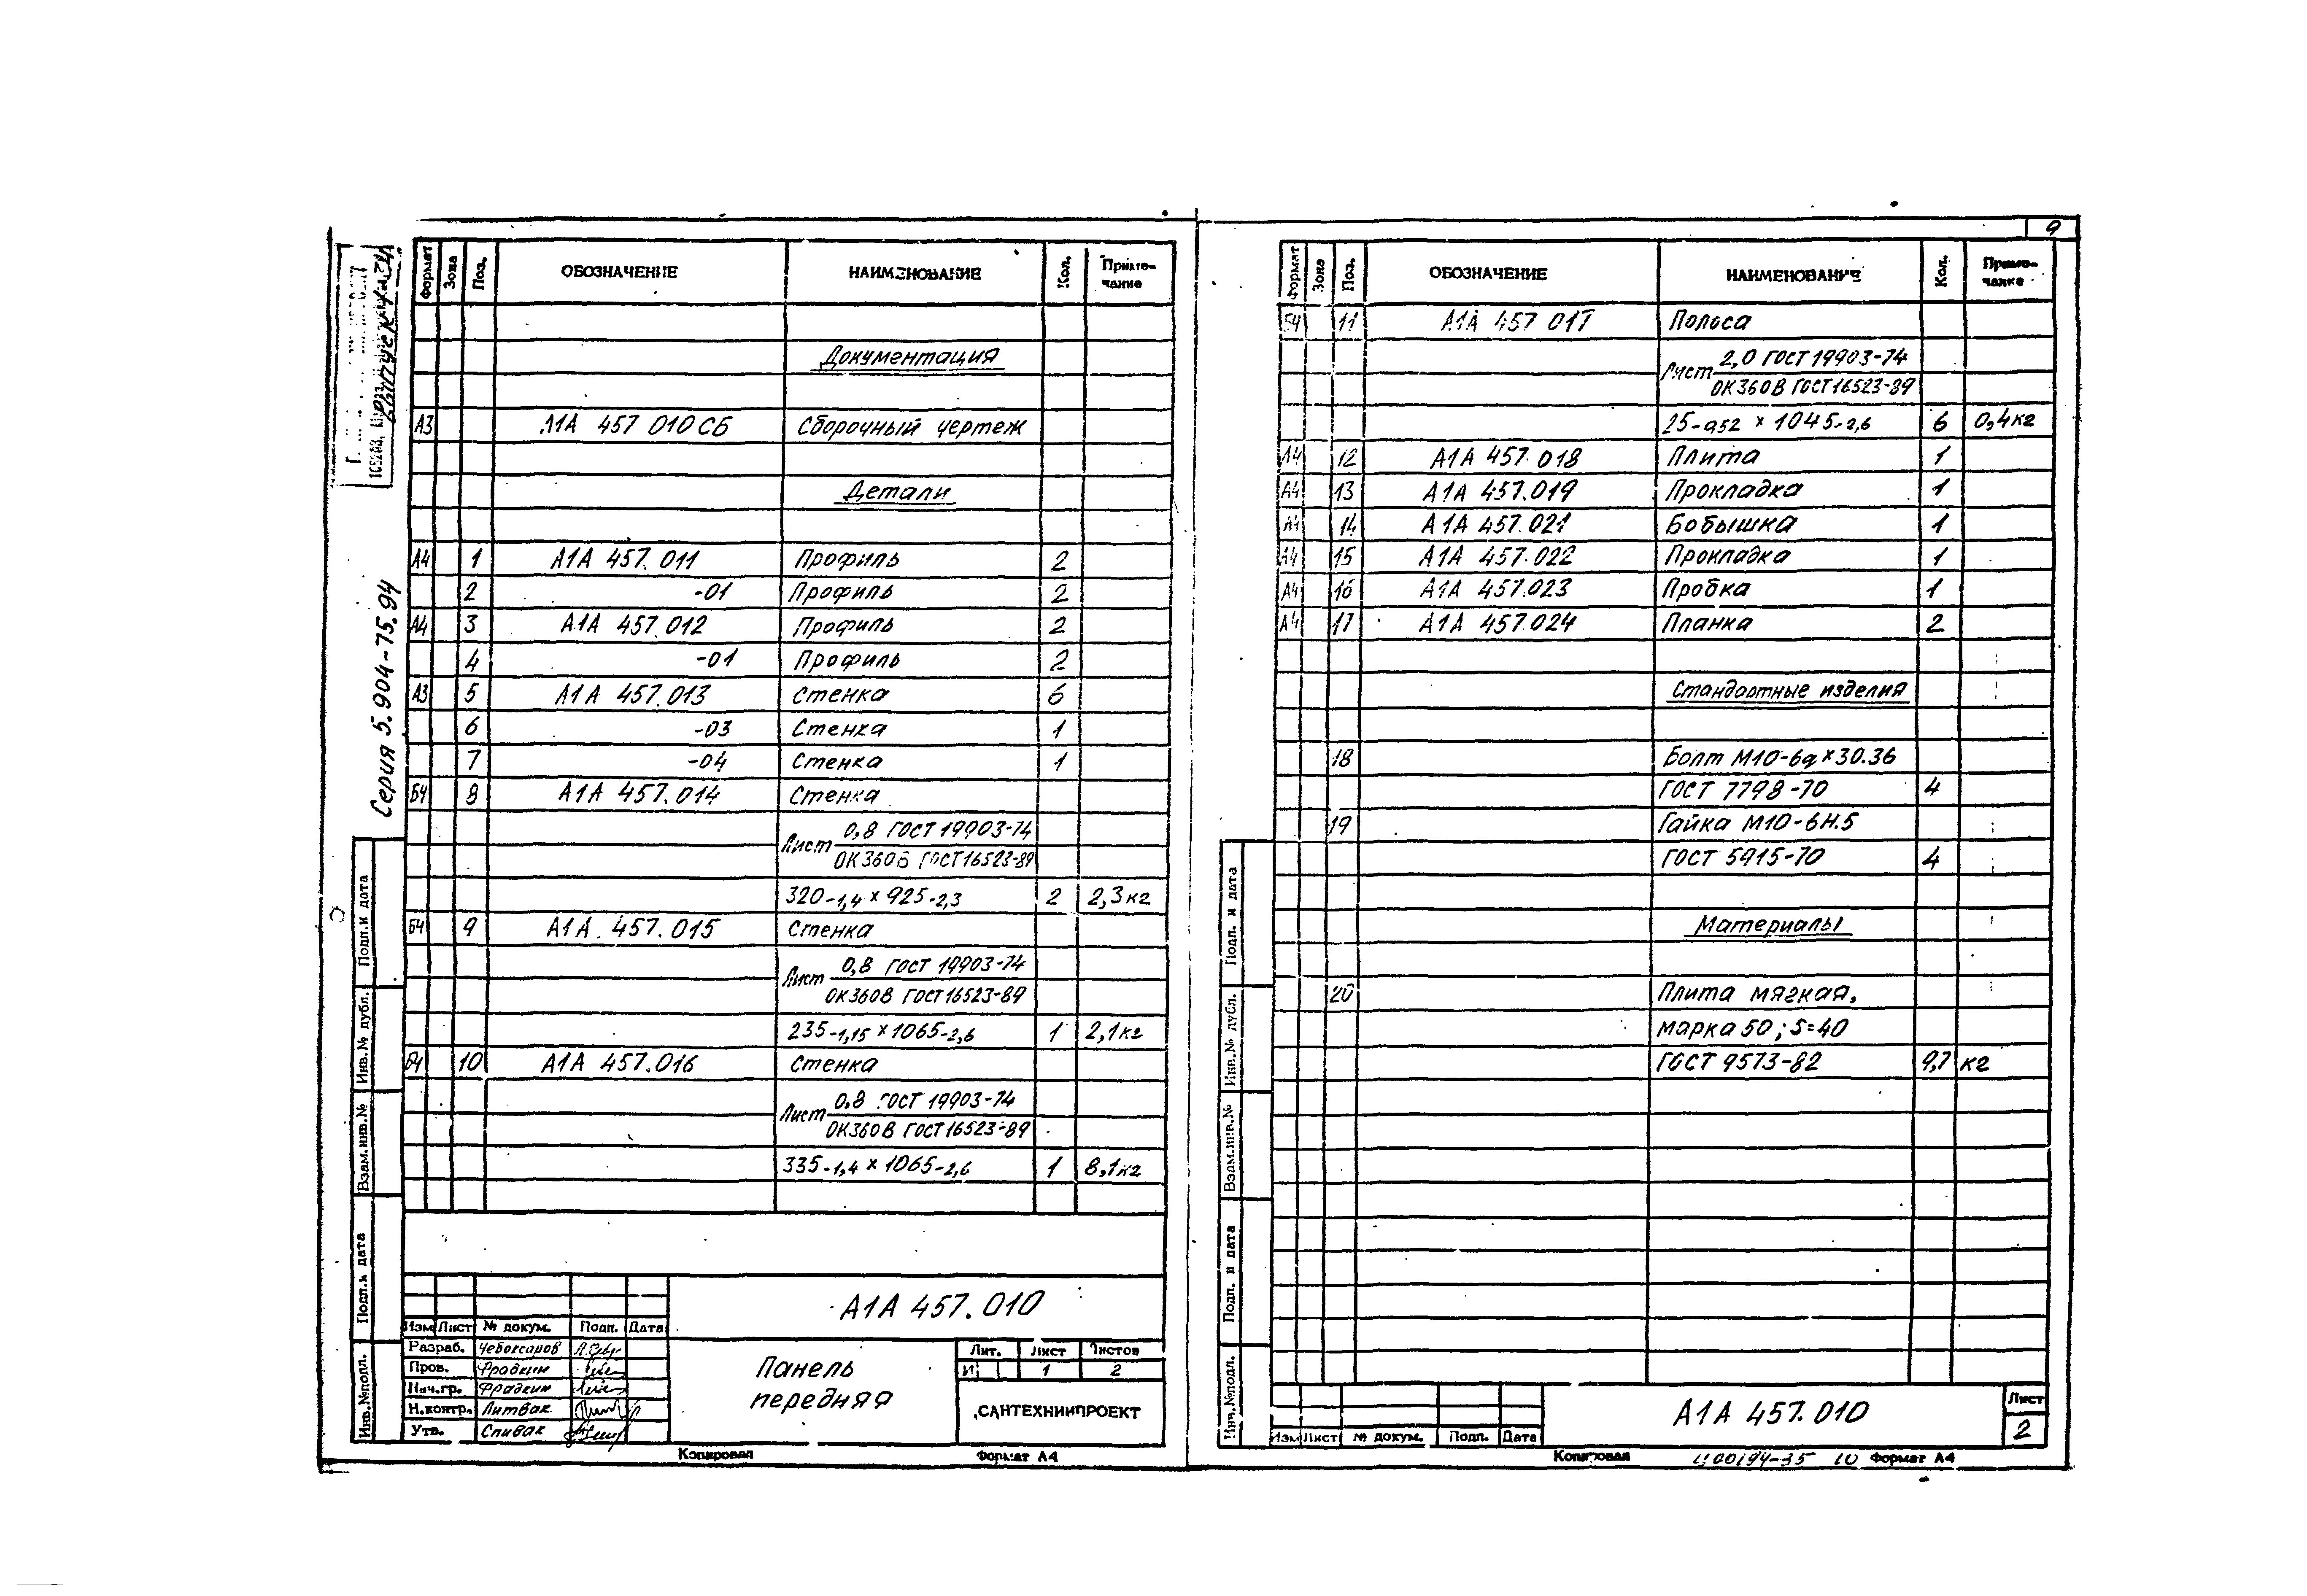 Серия 5.904-75.94
Формат Зона Поз. ОБОЗНАЧЕНИЕ НАИМЕНОВАНИЕ Кол. Примечание
Документация
А3 А1А 457 010 СБ Сборочный чертеж
Детали
А4 1 А1А 457.011 Профиль 2
2 -01 Профиль 2
А4 3 А1А 457.012 Профиль 2
4 -01 Профиль 2
А3 5 А1А 457.013 Стенка 6
6 -03 Стенка 1
7 -04 Стенка 1
Б4 8 А1А 457.014 Стенка
Лист 0,8 ГОСТ 19903-74
ОК360В ГОСТ 16523-89
320-1,4 × 925-2,3 2 2,3кг
Б4 9 А1А. 457.015 Стенка
Лист 0,8 ГОСТ 19903-74
ОК360В ГОСТ 16523-89
235-1,15 × 1065-2,6 1 2,1кг
Б4 10 А1А 457.016 Стенка
Лист 0,8 ГОСТ 19903-74
ОК360В ГОСТ 16523-89
335-1,4 × 1065-2,6 1 8,1кг
Подп. и дата
Инв.№ дубл.
Взам.инв.№
Подп. и дата
Инв.№подл.
А1А 457.010
Изм Лист № докум. Подп. Дата
Разраб. Чебоксаров
Пров. Фрадкин
Нач.гр. Фрадкин
Н.контр. Литвак
Утв. Спивак
Панель
передняя
Лит. Лист Листов
И 1 2
САНТЕХНИИПРОЕКТ
Копировал Формат А4
9
Формат Зона Поз. ОБОЗНАЧЕНИЕ НАИМЕНОВАНИЕ Кол. Примечание
Б4 11 А1А 457 017 Полоса
Лист 2,0 ГОСТ 19903-74
ОК360В ГОСТ 16523-89
25-0,52 × 1045-2,6 6 0,4кг
А4 12 А1А 457.018 Плита 1
А4 13 А1А 457.019 Прокладка 1
А4 14 А1А 457.021 Бобышка 1
А4 15 А1А 457.022 Прокладка 1
А4 16 А1А 457.023 Пробка 1
А4 17 А1А 457.024 Планка 2
Стандартные изделия
18 Болт М10-6g×30.36
ГОСТ 7798-70 4
19 Гайка М10-6Н.5
ГОСТ 5915-70 4
Материалы
20 Плита мягкая,
марка 50; S=40
ГОСТ 9573-82 9,7 кг
Подп. и дата
Инв.№ дубл.
Взам.инв.№
Подп. и дата
Инв.№подл.
Изм Лист № докум. Подп. Дата
А1А 457.010
Лист
2
Копировал Ц00194-35 10 Формат А4